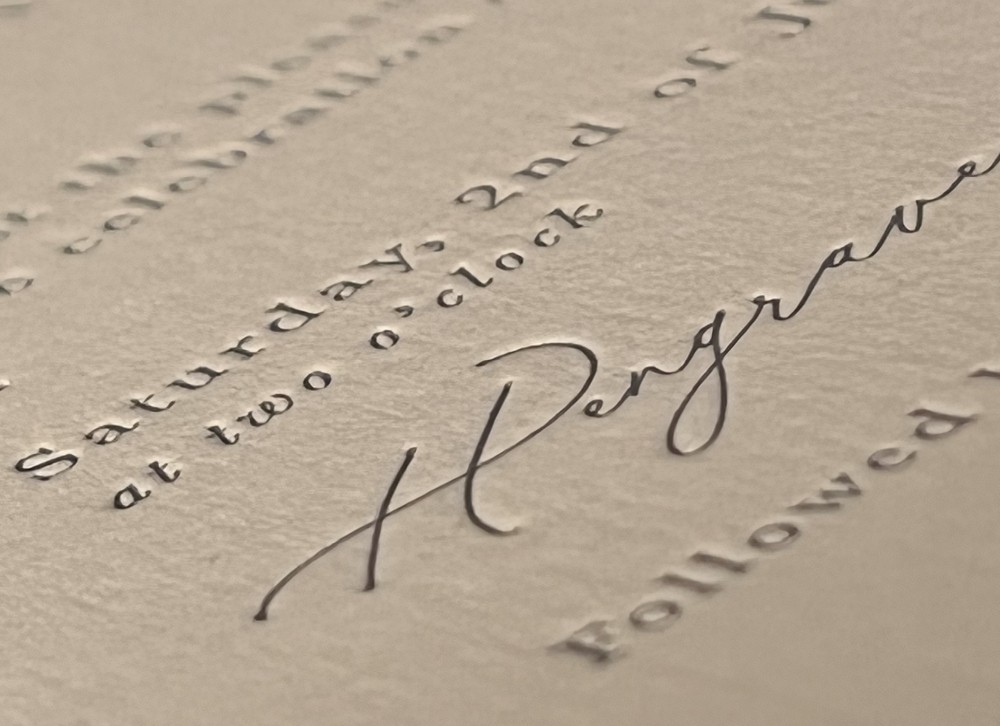 the
celebration
Saturday, 2nd of
at two o'clock
Hengrave
Followed